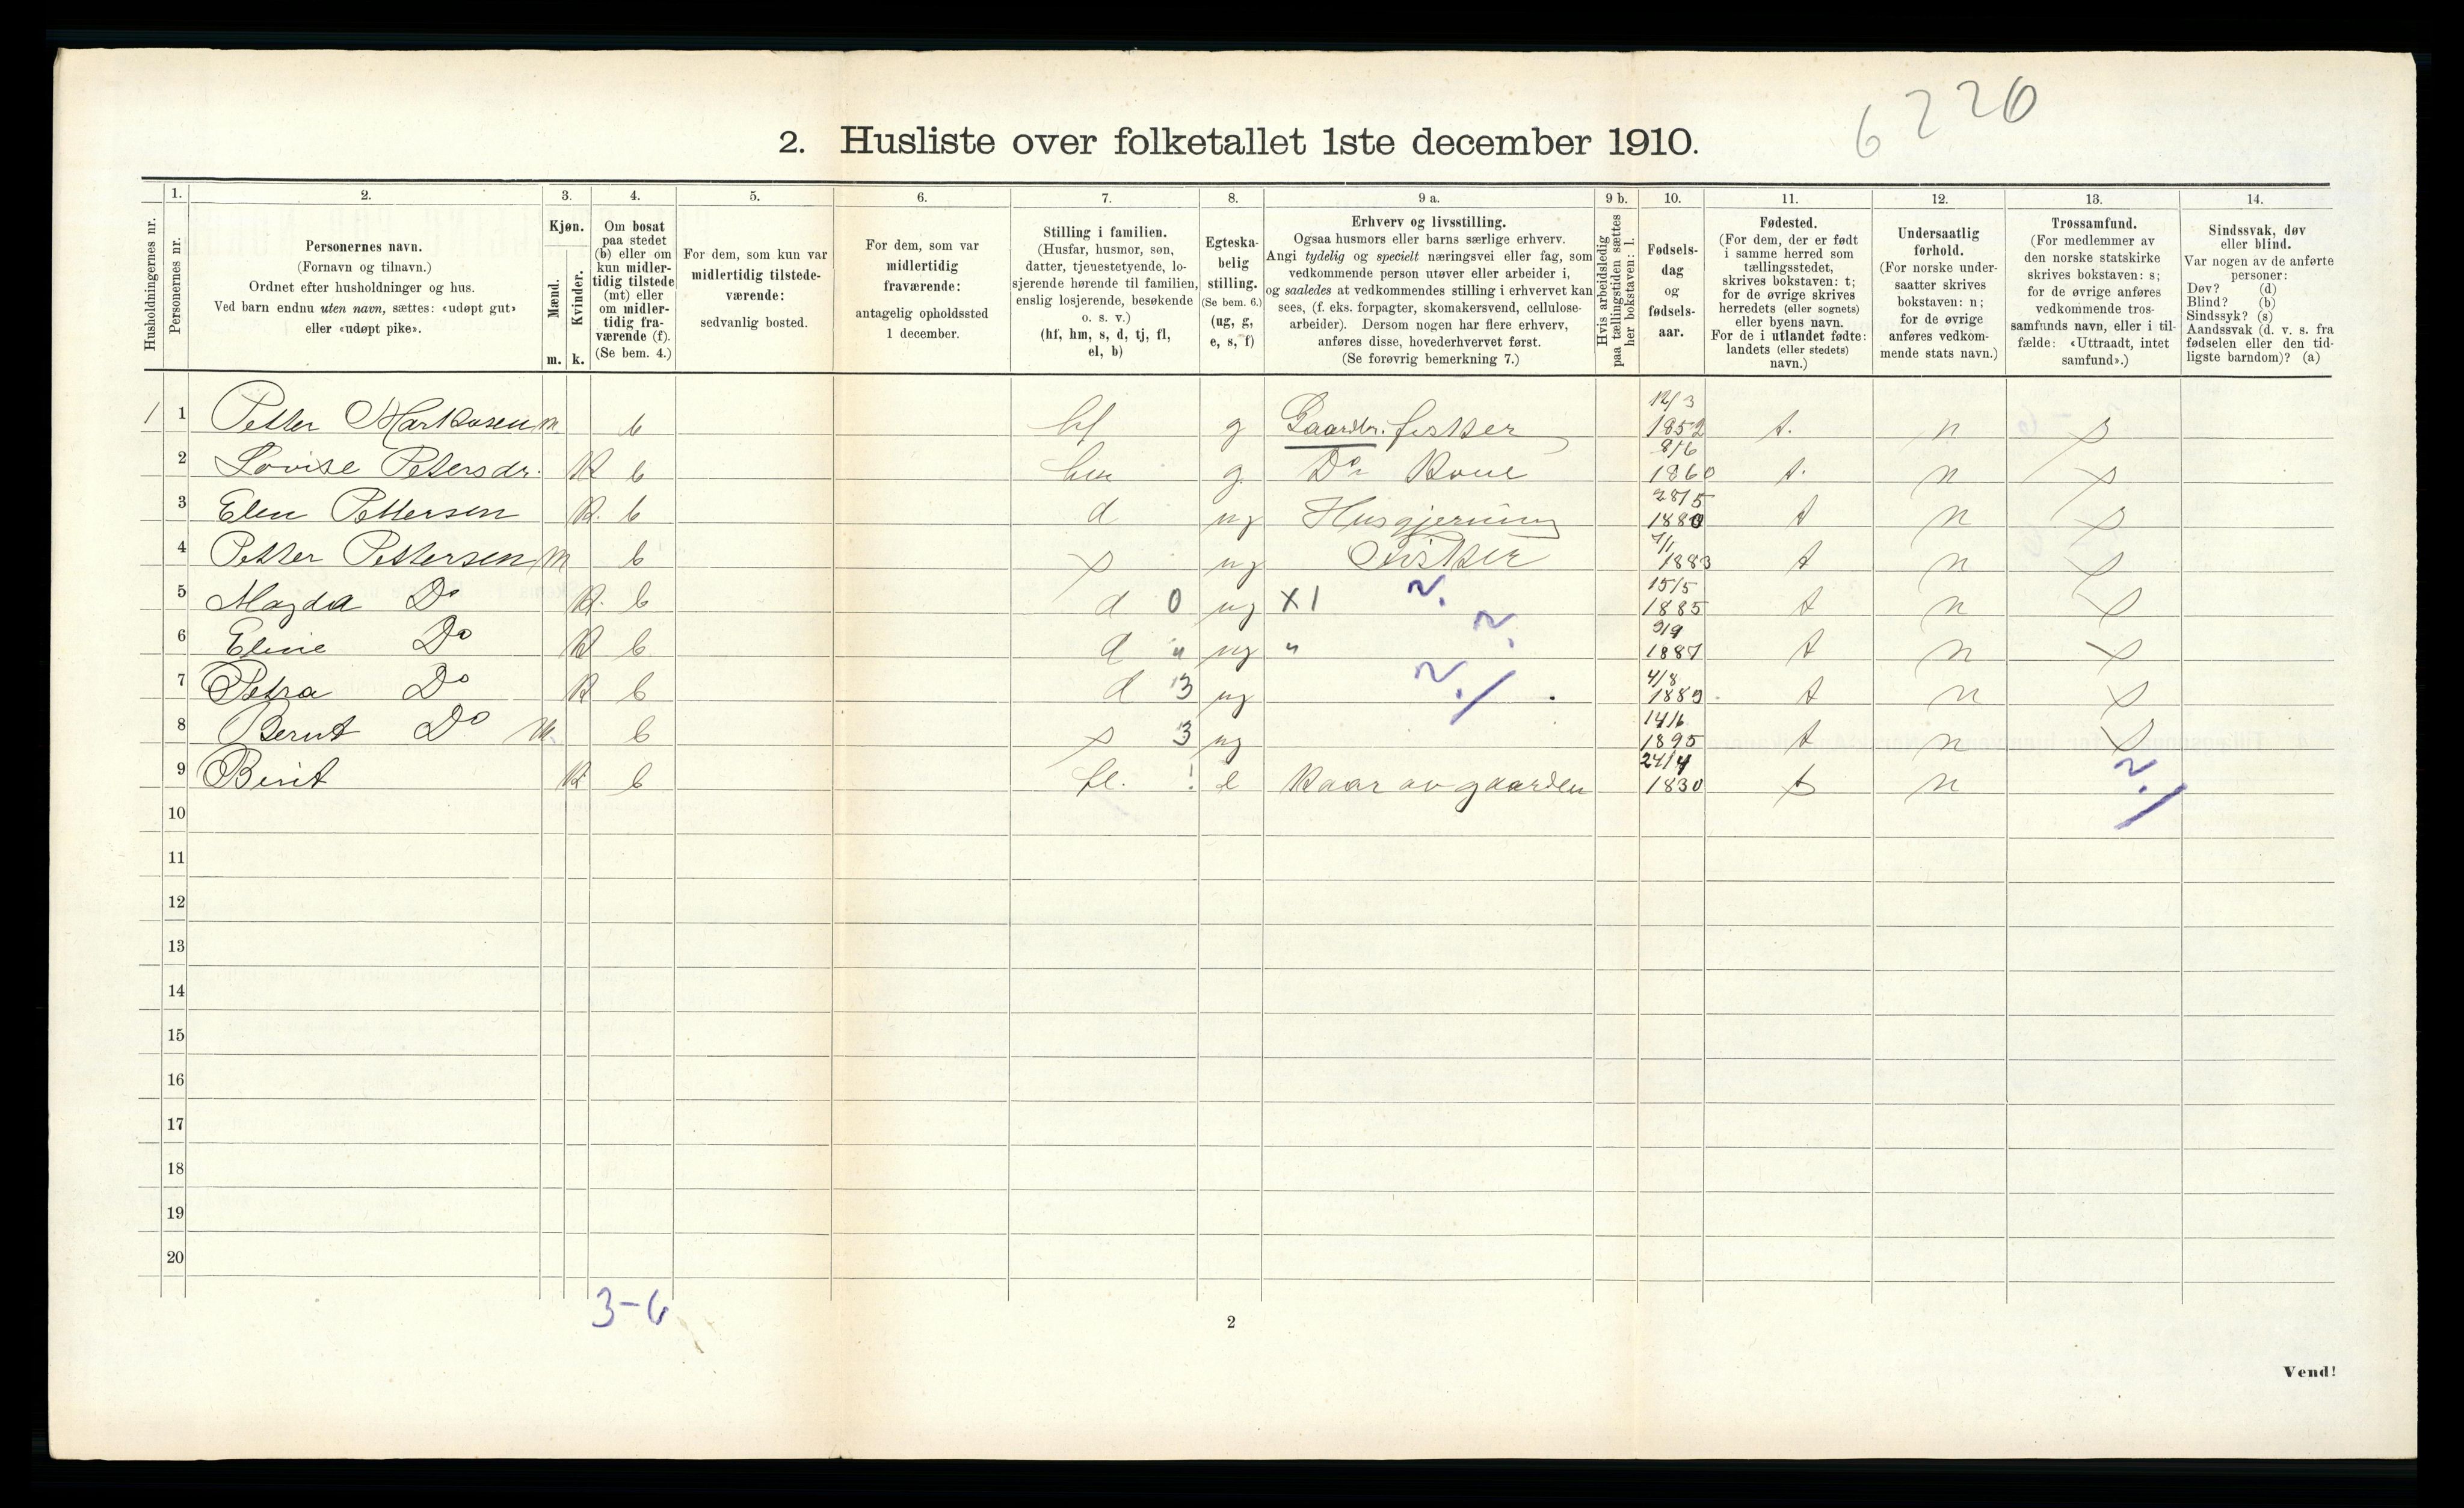 6220
2. Husliste over folketallet 1ste december 1910.
Husholdningernes nr.
1.
Personernes nr.
2.
Personernes navn.
(Fornavn og tilnavn.)
Ordnet efter husholdninger og hus.
Ved barn endnu uten navn, sættes: «udøpt gut»
eller «udøpt pike».
3.
Kjøn.
Mænd.
Kvinder.
m. k.
4.
Om bosat
paa stedet
(b) eller om
kun midler-
tidig tilstede
(mt) eller
om midler-
tidig fra-
værende (f).
(Se bem. 4.)
5.
For dem, som kun var
midlertidig tilstede-
værende:
sedvanlig bosted.
6.
For dem, som var
midlertidig
fraværende:
antagelig opholdssted
1 december.
7.
Stilling i familien.
(Husfar, husmor, søn,
datter, tjenestetyende, lo-
sjerende hørende til familien,
enslig losjerende, besøkende
o. s. v.)
(hf, hm, s, d, tj, fl,
el, b)
8.
Egteska-
belig
stilling.
(Se bem. 6.)
(ug, g,
e, s, f)
9 a.
Erhverv og livsstilling.
Ogsaa husmors eller barns særlige erhverv.
Angi tydelig og specielt næringsvei eller fag, som
vedkommende person utøver eller arbeider i,
og saaledes at vedkommendes stilling i erhvervet kan
sees, (f. eks. forpagter, skomakersvend, cellulose-
arbeider). Dersom nogen har flere erhverv,
anføres disse, hovederhvervet først.
(Se forøvrig bemerkning 7.)
9 b.
Hvis arbeidsledig
paa tællingstiden sættes
her bokstaven: l.
10.
Fødsels-
dag
og
fødsels-
aar.
11.
Fødested.
(For dem, der er født
i samme herred som
tællingsstedet,
skrives bokstaven: t;
for de øvrige skrives
herredets (eller sognets)
eller byens navn.
For de i utlandet fødte:
landets (eller stedets)
navn.)
12.
Undersaatlig
forhold.
(For norske under-
saatter skrives
bokstaven: n;
for de øvrige
anføres vedkom-
mende stats navn.)
13.
Trossamfund.
(For medlemmer av
den norske statskirke
skrives bokstaven: s;
for de øvrige anføres
vedkommende tros-
samfunds navn, eller i til-
fælde: «Uttraadt, intet
samfund».)
14.
Sindssvak, døv
eller blind.
Var nogen av de anførte
personer:
Døv? (d)
Blind? (b)
Sindssyk? (s)
Aandssvak (d. v. s. fra
fødselen eller den tid-
ligste barndom)? (a)
1 1 Petter Markusen m b hf g Gaardbr. fisker 12/3 1852 t. n s
2 Lovise Petersdr. k b hm g. Do Kone 8/6 1860 t. n s
3 Elen Pettersen k. b d ug Husgjerning 28/5 1880 t n s
4 Petter Pettersen m b s ug Fisker 7/1 1883 t n s
5 Magda Do k. b d 0 ug X 1 15/5 1885 t n s
6 Eline Do k b d " ug " 9/9 1887 t n s
7 Petra Do k b d 3 ug 4/8 1889 t n s
8 Bernt Do m. b s 3 ug 14/6 1895 t n s
9 Berit k b fl. ! e Kaar av gaarden 24/4 1830 t n
10
11
12
13
14
15
16
17
18
19
20
3-6
2
Vend!